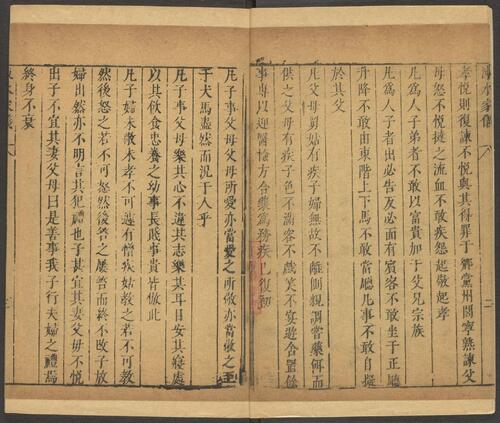 涑水家儀
二
孝悅則復諫不悅與其得罪于鄉黨州閭寧熟諫父
母怒不悅撻之流血不敢疾怨起敬起孝
凡爲人子弟者不敢以富貴加于父兄宗族
凡爲人子者出必告反必面有賓客不敢坐于正廳
升降不敢由東階上下馬不敢當廳凡事不敢自擬
於其父
凡父母舅姑有疾子婦無故不離側親調嘗藥餌而
供之父母有疾子色不滿容不戲笑不宴遊舍置餘
事專以迎醫檢方合藥爲務疾已復初
凡子事父母父母所愛亦當愛之所敬亦當敬之至
于犬馬盡然而況于人乎
凡子事父母樂其心不違其志樂其耳目安其寢處
以其飲食忠養之幼事長賤事貴皆倣此
凡子婦未敬未孝不可遽有憎疾姑敎之若不可敎
然後怒之若不可怒然後笞之屢笞而終不改子放
婦出然亦不明言其犯禮也子甚宜其妻父母不悅
出子不宜其妻父母曰是善事我子行夫婦之禮焉
終身不衰
水家儀
三